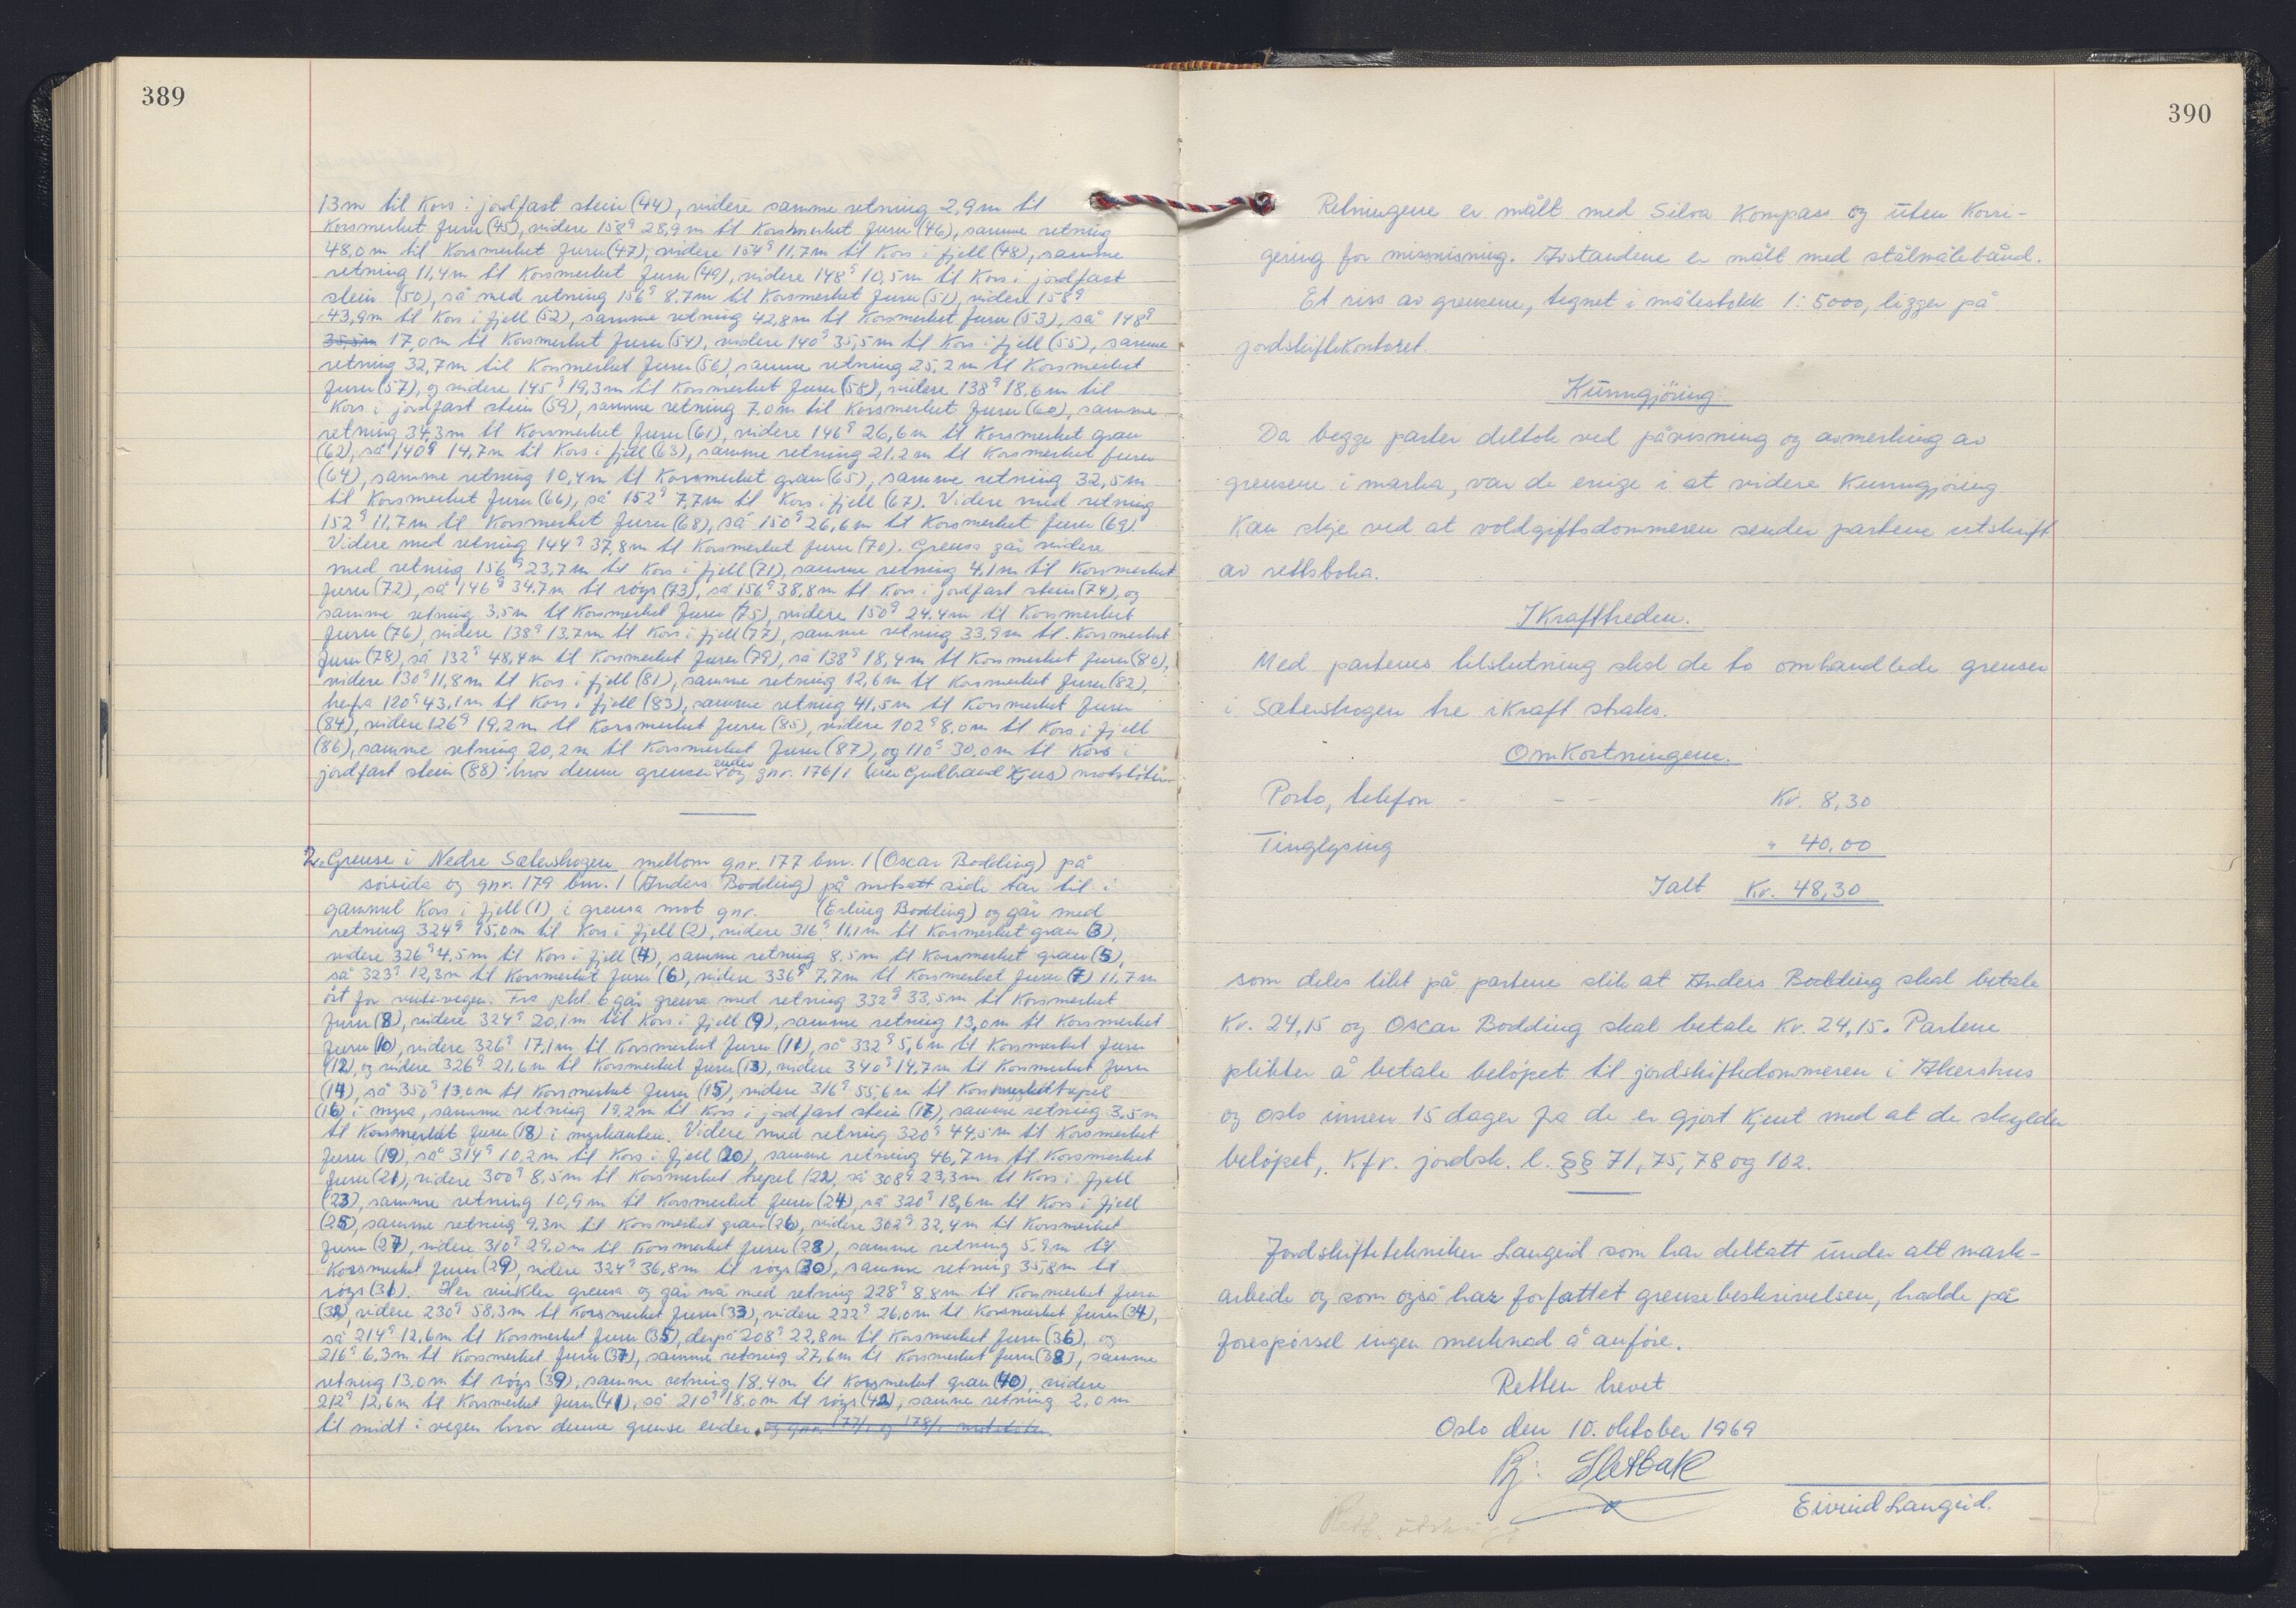 389
13m til Kors i jordfast stein (44), videre samme retning 2,9m til
Korsmerket furu (45), videre 158g 28,9m til Korsmerket furu (46), samme retning
48,0m til Korsmerket furu (47), videre 154g 11,7m til Kors i fjell (48), samme
retning 11,4m til Korsmerket furu (49), videre 148g 10,5m til Kors i jordfast
stein (50), så med retning 156g 8,7m til Korsmerket furu (51), videre 158g
43,9m til Kors i fjell (52), samme retning 42,8m til Korsmerket furu (53), så 148g
35,5m 17,0m til Korsmerket furu (54), videre 140g 35,5m til Kors i fjell (55), samme
retning 32,7m til Korsmerket furu (56), samme retning 25,2m til Korsmerket
furu (57), og videre 145g 19,3m til Korsmerket furu (58), videre 138g 18,6m til
Kors i jordfast stein (59), samme retning 7,0m til Korsmerket furu (60), samme
retning 34,3m til Korsmerket furu (61), videre 146g 26,6m til Korsmerket gran
(62), så 140g 14,7m til Kors i fjell (63), samme retning 21,2m til Korsmerket furu
(64), samme retning 10,4m til Korsmerket gran (65), samme retning 32,5m
til Korsmerket furu (66), så 152g 7,7m til Kors i fjell (67). Videre med retning
152g 11,7m til Korsmerket furu (68), så 150g 26,6m til Korsmerket furu (69).
Videre med retning 144g 37,8m til Korsmerket furu (70). Grensa går videre
med retning 156g 23,7m til Kors i fjell (71), samme retning 4,1m til Korsmerket
furu (72), så 146g 34,7m til röys (73), så 156g 38,8m til Kors i jordfast stein (74), og
samme retning 3,5m til Korsmerket furu (75), videre 150g 24,4m til Korsmerket
furu (76), videre 138g 13,7m til Kors i fjell (77), samme retning 33,9m til Korsmerket
furu (78), så 132g 48,4m til Korsmerket furu (79), så 138g 18,4m til Korsmerket furu (80),
videre 130g 11,8m til Kors i fjell (81), samme retning 12,6m til Korsmerket furu (82),
herfra 120g 43,1m til Kors i fjell (83), samme retning 41,5m til Korsmerket furu
(84), videre 126g 19,2m til Korsmerket furu (85), videre 102g 8,0m til Kors i fjell
(86), samme retning 20,2m til Korsmerket furu (87), og 110g 30,0m til Kors i
jordfast stein (88) hvor denne grensen ender og gnr. 176/1 (eier Gudbrand Kjus) motstöter.
2. Grense i Nedre Säterskogen mellom gnr. 177 bnr. 1 (Oscar Bodding) på
sörsida og gnr. 179 bnr. 1 (Anders Bodding) på motsatt side tar til i
gammel Kors i fjell (1) i grensa mot gnr. (Erling Bodding) og går med
retning 324g 15,0m til Kors i fjell (2), videre 316g 11,1m til Korsmerket gran (3),
videre 326g 4,5m til Kors i fjell (4), samme retning 8,5m til Korsmerket gran (5),
så 323g 12,3m til Korsmerket furu (6), videre 336g 7,7m til Korsmerket furu (7) 11,7m
öst for vegen. Fra pkt. 6 går grensa med retning 332g 33,5m til Korsmerket
furu (8), videre 324g 20,1m til Kors i fjell (9), samme retning 13,0m til Korsmerket
furu (10), videre 326g 17,1m til Korsmerket furu (11), så 332g 5,6m til Korsmerket furu
(12), og videre 326g 21,6m til Korsmerket furu (13), videre 340g 14,7m til Korsmerket furu
(14), så 350g 13,0m til Korsmerket furu (15), videre 316g 55,6m til Korsmerket trepel
(16) i myra, samme retning 19,2m til Kors i jordfast stein (17), samme retning 3,5m
til Korsmerket furu (18) i myrkanten. Videre med retning 320g 44,5m til Korsmerket
furu (19), så 314g 10,2m til Kors i fjell (20), samme retning 46,7m til Korsmerket
furu (21), videre 300g 8,5m til Korsmerket trepel (22), så 308g 23,3m til Kors i fjell
(23), samme retning 10,9m til Korsmerket furu (24), så 320g 18,6m til Kors i fjell
(25), samme retning 9,3m til Korsmerket gran (26), videre 302g 32,4m til Korsmerket
furu (27), videre 310g 29,0m til Korsmerket furu (28), samme retning 5,9m til
Korsmerket furu (29), videre 324g 36,8m til röys (30), samme retning 35,8m til
röys (31). Her vinkler grensa og går nå med retning 228g 8,8m til Korsmerket furu
(32), videre 230g 58,3m til Korsmerket furu (33), videre 222g 26,0m til Korsmerket furu (34),
så 214g 12,6m til Korsmerket furu (35), derpå 208g 22,8m til Korsmerket furu (36), og
216g 6,3m til Korsmerket furu (37), samme retning 27,6m til Korsmerket furu (38), samme
retning 13,0m til röys (39), samme retning 18,4m til Korsmerket gran (40), videre
212g 12,6m til Korsmerket furu (41), så 210g 18,0m til röys (42), samme retning 2,0m
til midt i vegen hvor denne grense ender. og gnr. 177/1 og 178/1 motstöter.
390
Retningene er målt med Silva Kompass og uten Korri-
gering for missvisning. Avstandene er målt med stålmålebånd.
Et riss av grensene, tegnet i målestokk 1:5000, ligger på
jordskiftekontoret.
Kunngjöring.
Da begge parter deltok ved påvisning og avmerking av
grensene i marka, var de enige i at videre Kunngjöring
Kan skje ved at voldgiftsdommeren sender partene utskrift
av rettsboka.
IKrafttreden.
Med partenes tilslutning skal de to omhandlede grenser
i Säterskogen tre iKraft straks.
OmKostningene.
Porto, telefon - - - Kr. 8,30
Tinglysing " 40,00
Ialt Kr. 48,30
som deles likt på partene slik at Anders Bodding skal betale
Kr. 24,15 og Oscar Bodding skal betale Kr. 24,15. Partene
plikter å betale belöpet til jordskiftedommeren i Akershus
og Oslo innen 15 dager fra de er gjort Kjent med at de skylder
belöpet, Kfr. jordsk. l. §§ 71, 75, 78 og 102.
Jordskiftetekniker Langeid som har deltatt under alt mark-
arbeide og som også har forfattet grensebeskrivelsen, hadde på
forespörsel ingen merknad å anföre.
Retten hevet
Oslo den 10. oktober 1969
Bj. Sletbak
Eivind Langeid.